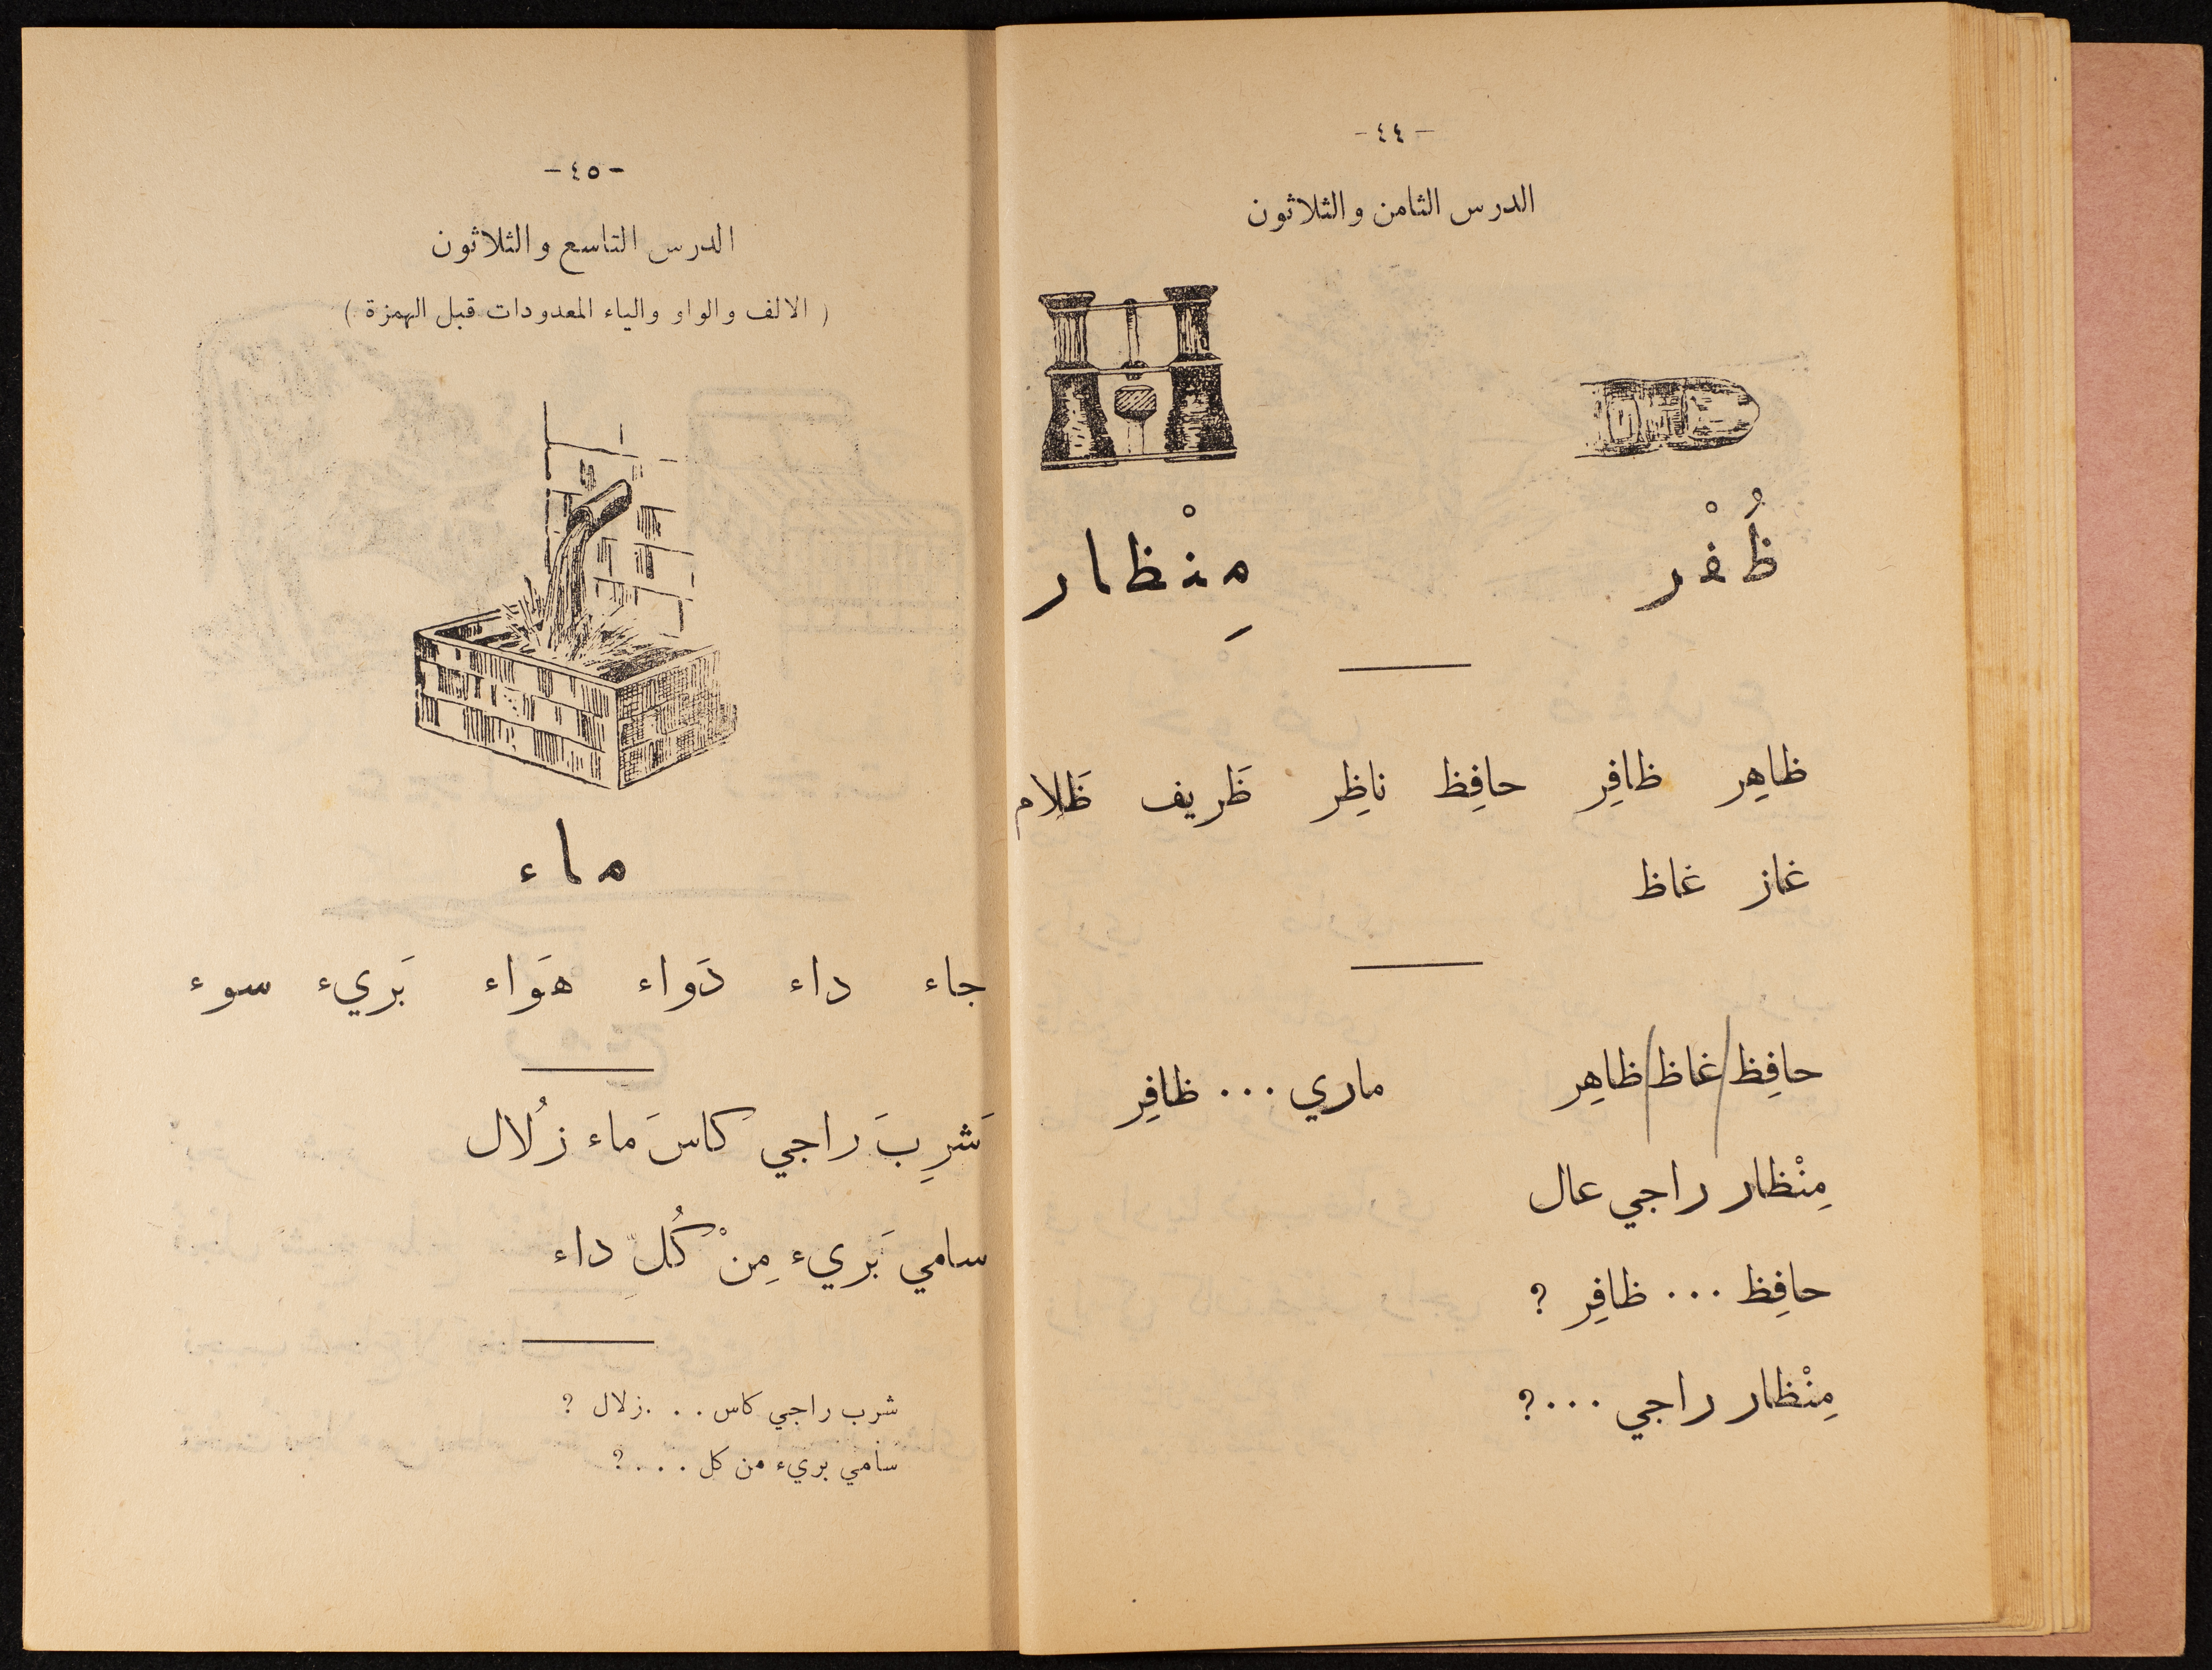 - ٤٤ -
الدرس الثامن والثلاثون
ظُفْر مِنْظار
ظاهِر ظافِر حافِظ ناظِر ظَريف ظَلام
غاز غاظ
حافِظ غاظ ظاهِر ماري ... ظافِر
مِنْظار راجي عال
حافِظ ... ظافِر ؟
مِنْظار راجي ...؟
- ٤٥ -
الدرس التاسع والثلاثون
( الالف والواو والياء المعدودات قبل الهمزة )
ماء
جاء داء دَواء هَواء بَريء سوء
شَرِبَ راجي كاسَ ماء زُلال
سامي بَريء مِنْ كُلِّ داء
شرب راجي كاس . . . زلال ؟
سامي بريء من كل . . . ؟